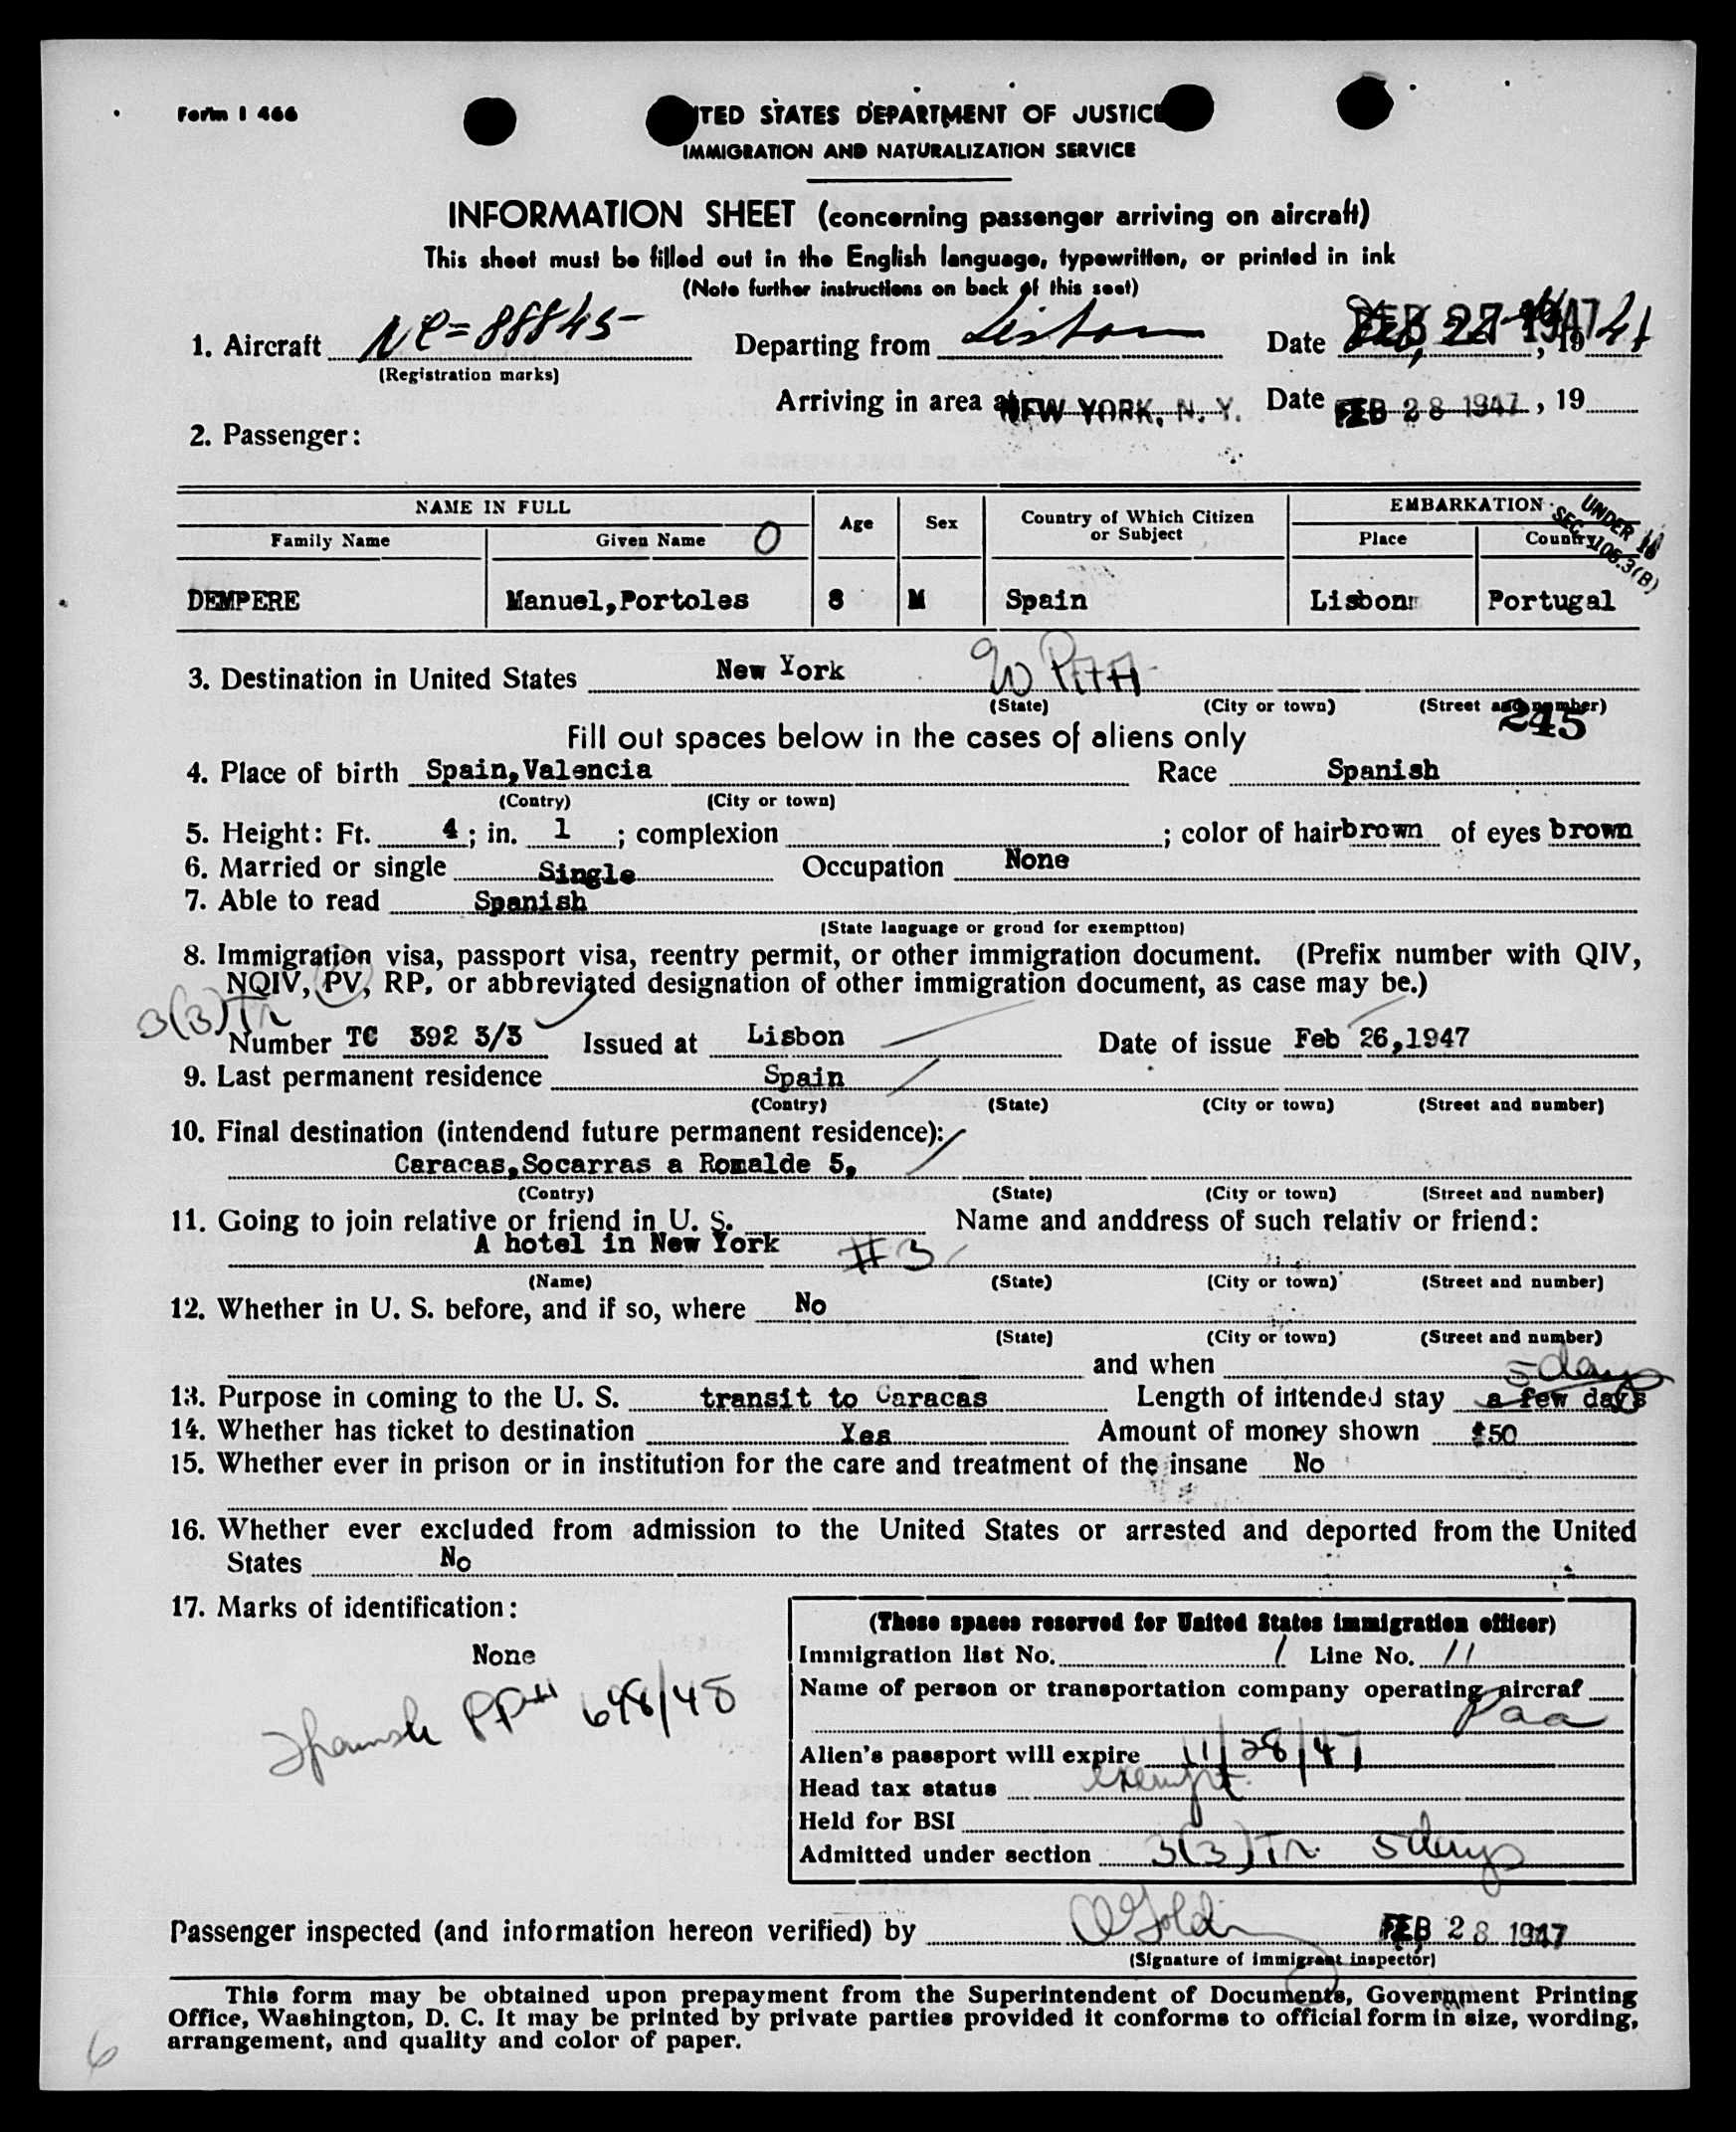 Form I 466
ITED STATES DEPARTMENT OF JUSTICE
IMMIGRATION AND NATURALIZATION SERVICE
INFORMATION SHEET (concerning passenger arriving on aircraft)
This sheet must be filled out in the English language, typewritten, or printed in ink
(Note further instructions on back of this seet)
1. Aircraft NC=88845 Departing from Lisbon Date FEB 27 1947, 19
(Registration marks)
Arriving in area at NEW YORK, N. Y. Date FEB 28 1947, 19
2. Passenger:
NAME IN FULL Age Sex Country of Which Citizen or Subject EMBARKATION UNDER 16
Family Name Given Name O Place Country SEC 105.3(B)
DEMPERE Manuel,Portoles 8 M Spain Lisbon Portugal
3. Destination in United States New York W
(State) (City or town) (Street and number)
245
Fill out spaces below in the cases of aliens only
4. Place of birth Spain,Valencia Race Spanish
(Contry) (City or town)
5. Height: Ft. 4; in. 1; complexion ; color of hair brown of eyes brown
6. Married or single Single Occupation None
7. Able to read Spanish
(State language or groud for exemptton)
8. Immigration visa, passport visa, reentry permit, or other immigration document. (Prefix number with QIV,
NQIV, PV, RP, or abbreviated designation of other immigration document, as case may be.)
3(3)Tr
Number TC 392 3/3 Issued at Lisbon Date of issue Feb 26,1947
9. Last permanent residence Spain
(Contry) (State) (City or town) (Street and number)
10. Final destination (intendend future permanent residence):
Caracas,Socarras a Romalde 5,
(Contry) (State) (City or town) (Street and number)
11. Going to join relative or friend in U. S. Name and anddress of such relativ or friend:
A hotel in New York #3
(Name) (State) (City or town) (Street and number)
12. Whether in U. S. before, and if so, where No
(State) (City or town) (Street and number)
and when
5 days
13. Purpose in coming to the U. S. transit to Caracas Length of intended stay a few days
14. Whether has ticket to destination Yes Amount of money shown $50
15. Whether ever in prison or in institution for the care and treatment of the insane No
16. Whether ever excluded from admission to the United States or arrested and deported from the United
States No
17. Marks of identification:
None
Spanish PP# 648/48
(These spaces reserved for United States immigration officer)
Immigration list No. 1 Line No. 11
Name of person or transportation company operating aircraf
Paa
Alien's passport will expire 11/28/47
Head tax status exempt.
Held for BSI
Admitted under section 3(3)Tr. 5 days
Passenger inspected (and information hereon verified) by FEB 28 1947
(Signature of immigrant inspector)
This form may be obtained upon prepayment from the Superintendent of Documents, Government Printing
Office, Washington, D. C. It may be printed by private parties provided it conforms to official form in size, wording,
arrangement, and quality and color of paper.
6